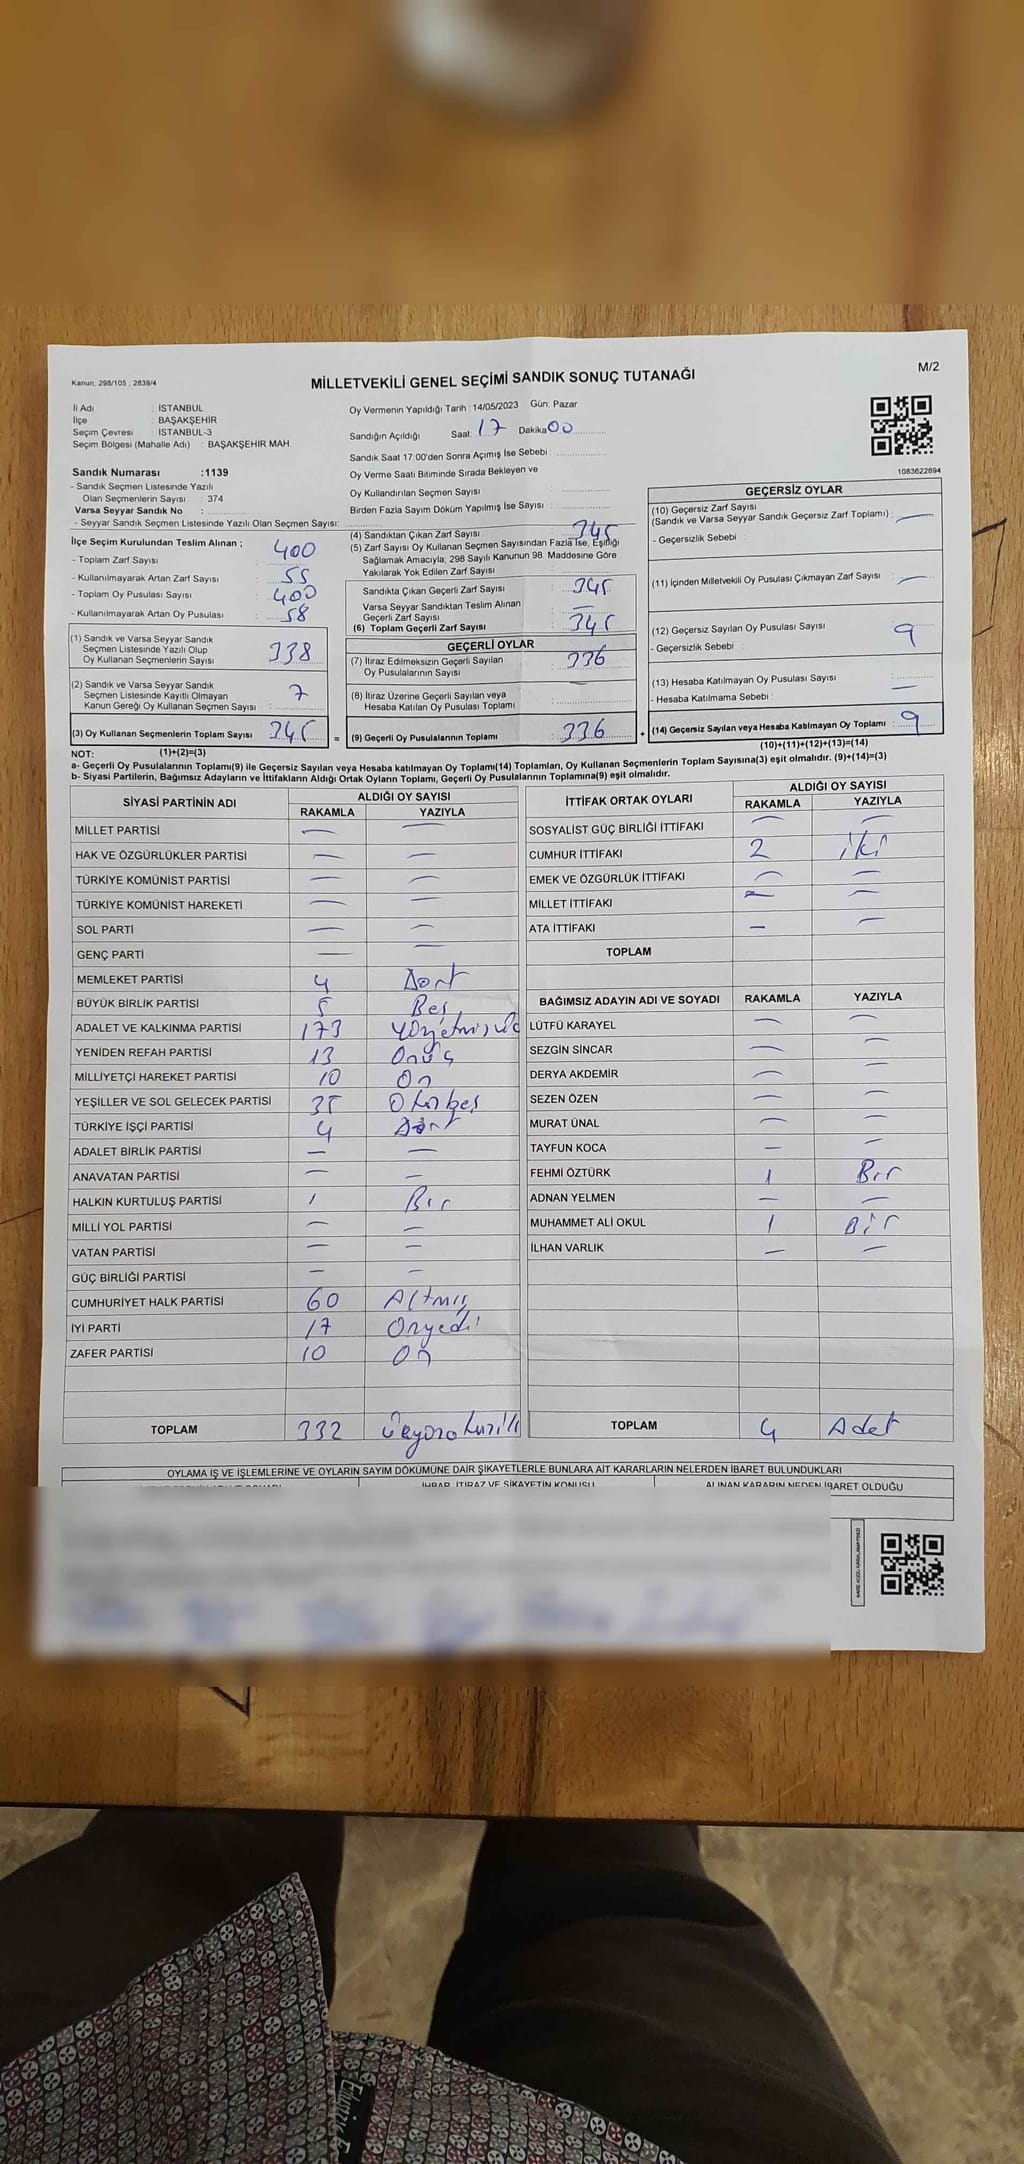 Kanun, 298/105 , 2839/4
MİLLETVEKİLİ GENEL SEÇİMİ SANDIK SONUÇ TUTANAĞI
M/2
İl Adı : İSTANBUL
İlçe : BAŞAKŞEHİR
Seçim Çevresi : İSTANBUL-3
Seçim Bölgesi (Mahalle Adı) : BAŞAKŞEHİR MAH.
Sandık Numarası :1139
- Sandık Seçmen Listesinde Yazılı
Olan Seçmenlerin Sayısı : 374
Varsa Seyyar Sandık No :
- Seyyar Sandık Seçmen Listesinde Yazılı Olan Seçmen Sayısı:
Oy Vermenin Yapıldığı Tarih : 14/05/2023 Gün: Pazar
Sandığın Açıldığı Saat: 17 Dakika 00
Sandık Saat 17:00'den Sonra Açımış İse Sebebi :
Oy Verme Saati Bitiminde Sırada Bekleyen ve
Oy Kullandırılan Seçmen Sayısı
Birden Fazla Sayım Döküm Yapılmış İse Sayısı :
1083622894
İlçe Seçim Kurulundan Teslim Alınan ;
- Toplam Zarf Sayısı : 400
- Kullanılmayarak Artan Zarf Sayısı : 55
- Toplam Oy Pusulası Sayısı : 400
- Kullanılmayarak Artan Oy Pusulası : 58
(1) Sandık ve Varsa Seyyar Sandık
Seçmen Listesinde Yazılı Olup
Oy Kullanan Seçmenlerin Sayısı : 338
(2) Sandık ve Varsa Seyyar Sandık
Seçmen Listesinde Kayıtlı Olmayan
Kanun Gereği Oy Kullanan Seçmen Sayısı : 7
(3) Oy Kullanan Seçmenlerin Toplam Sayısı : 345 =
(4) Sandıktan Çıkan Zarf Sayısı : 345
(5) Zarf Sayısı Oy Kullanan Seçmen Sayısından Fazla İse, Eşitliği
Sağlamak Amacıyla; 298 Sayılı Kanunun 98. Maddesine Göre
Yakılarak Yok Edilen Zarf Sayısı
Sandıkta Çıkan Geçerli Zarf Sayısı : 345
Varsa Seyyar Sandıktan Teslim Alınan
Geçerli Zarf Sayısı : —
(6) Toplam Geçerli Zarf Sayısı : 345
GEÇERLİ OYLAR
(7) İtiraz Edilmeksizin Geçerli Sayılan
Oy Pusulalarının Sayısı : 336
(8) İtiraz Üzerine Geçerli Sayılan veya
Hesaba Katılan Oy Pusulası Toplamı : —
(9) Geçerli Oy Pusulalarının Toplamı : 336 +
GEÇERSİZ OYLAR
(10) Geçersiz Zarf Sayısı
(Sandık ve Varsa Seyyar Sandık Geçersiz Zarf Toplamı) : —
- Geçersizlik Sebebi :
(11) İçinden Milletvekili Oy Pusulası Çıkmayan Zarf Sayısı : —
(12) Geçersiz Sayılan Oy Pusulası Sayısı : 9
- Geçersizlik Sebebi :
(13) Hesaba Katılmayan Oy Pusulası Sayısı : —
- Hesaba Katılmama Sebebi :
(14) Geçersiz Sayılan veya Hesaba Katılmayan Oy Toplamı : 9
NOT: (1)+(2)=(3)
(10)+(11)+(12)+(13)=(14)
a- Geçerli Oy Pusulalarının Toplamı(9) ile Geçersiz Sayılan veya Hesaba katılmayan Oy Toplamı(14) Toplamları, Oy Kullanan Seçmenlerin Toplam Sayısına(3) eşit olmalıdır. (9)+(14)=(3)
b- Siyasi Partilerin, Bağımsız Adayların ve İttifakların Aldığı Ortak Oyların Toplamı, Geçerli Oy Pusulalarının Toplamına(9) eşit olmalıdır.
SİYASİ PARTİNİN ADI ALDIĞI OY SAYISI
RAKAMLA YAZIYLA
MİLLET PARTİSİ — —
HAK VE ÖZGÜRLÜKLER PARTİSİ — —
TÜRKİYE KOMÜNİST PARTİSİ — —
TÜRKİYE KOMÜNİST HAREKETİ — —
SOL PARTİ — —
GENÇ PARTİ — —
MEMLEKET PARTİSİ 4 Dört
BÜYÜK BİRLİK PARTİSİ 5 Beş
ADALET VE KALKINMA PARTİSİ 173
YENİDEN REFAH PARTİSİ 13 Onüç
MİLLİYETÇİ HAREKET PARTİSİ 10 On
YEŞİLLER VE SOL GELECEK PARTİSİ 35 Otuzbeş
TÜRKİYE İŞÇİ PARTİSİ 4 Dört
ADALET BİRLİK PARTİSİ — —
ANAVATAN PARTİSİ — —
HALKIN KURTULUŞ PARTİSİ 1 Bir
MİLLİ YOL PARTİSİ — —
VATAN PARTİSİ — —
GÜÇ BİRLİĞİ PARTİSİ — —
CUMHURİYET HALK PARTİSİ 60 Altmış
İYİ PARTİ 17 Onyedi
ZAFER PARTİSİ 10 On
TOPLAM 332
İTTİFAK ORTAK OYLARI ALDIĞI OY SAYISI
RAKAMLA YAZIYLA
SOSYALİST GÜÇ BİRLİĞİ İTTİFAKI — —
CUMHUR İTTİFAKI 2 iki
EMEK VE ÖZGÜRLÜK İTTİFAKI — —
MİLLET İTTİFAKI — —
ATA İTTİFAKI — —
TOPLAM
BAĞIMSIZ ADAYIN ADI VE SOYADI RAKAMLA YAZIYLA
LÜTFÜ KARAYEL — —
SEZGİN SİNCAR — —
DERYA AKDEMİR — —
SEZEN ÖZEN — —
MURAT ÜNAL — —
TAYFUN KOCA — —
FEHMİ ÖZTÜRK 1 Bir
ADNAN YELMEN — —
MUHAMMET ALİ OKUL 1 Bir
İLHAN VARLIK — —
TOPLAM 4 Adet
OYLAMA İŞ VE İŞLEMLERİNE VE OYLARIN SAYIM DÖKÜMÜNE DAİR ŞİKAYETLERLE BUNLARA AİT KARARLARIN NELERDEN İBARET BULUNDUKLARI
İHBAR, İTİRAZ VE ŞİKAYETİN KONUSU ALINAN KARARIN NEDEN İBARET OLDUĞU